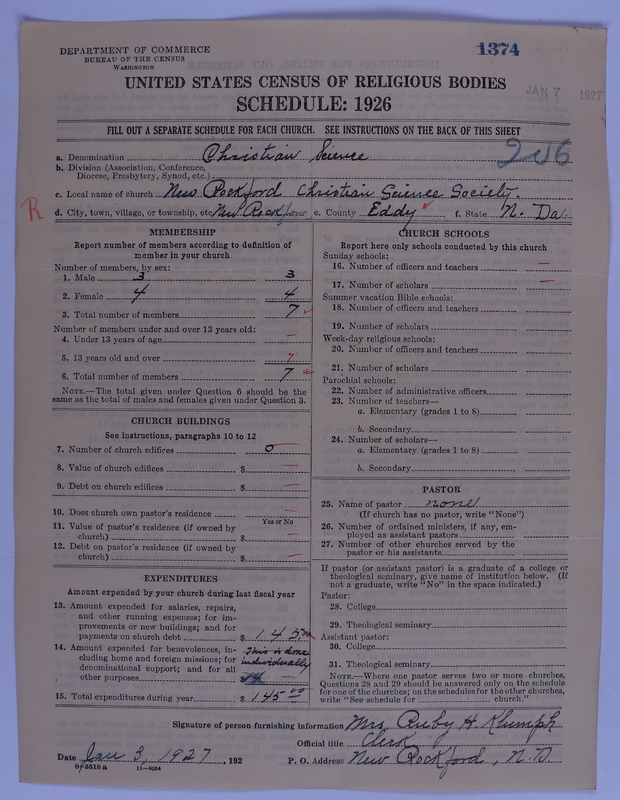 DEPARTMENT OF COMMERCE
BUREAU OF THE CENSUS
WASHINGTON
1374
UNITED STATES CENSUS OF RELIGIOUS BODIES
SCHEDULE: 1926
JAN 7 1927
FILL OUT A SEPARATE SCHEDULE FOR EACH CHURCH. SEE INSTRUCTIONS ON THE BACK OF THIS SHEET
a. Denomination Christian Science
206
b. Division (Association, Conference,
Diocese, Presbytery, Synod, etc.)
c. Local name of church New Rockford Christian Science Society.
R
d. City, town, village, or township, etc. New Rockford e. County Eddy f. State N. Da.
MEMBERSHIP
Report number of members according to definition of
member in your church
Number of members, by sex:
1. Male 3 3
2. Female 4 4
3. Total number of members 7
Number of members under and over 13 years old:
4. Under 13 years of age —
5. 13 years old and over 7
6. Total number of members 7
NOTE.—The total given under Question 6 should be
same as the total of males and females given under Question 3.
CHURCH BUILDINGS
See instructions, paragraphs 10 to 12
7. Number of church edifices 0
8. Value of church edifices $ —
9. Debt on church edifices $ —
10. Does church own pastor's residence —
Yes or No
11. Value of pastor's residence (if owned by
church) $ —
12. Debt on pastor's residence (if owned by
church) $ —
EXPENDITURES
Amount expended by your church during last fiscal year
13. Amount expended for salaries, repairs,
and other running expenses; for im-
provements or new buildings; and for
payments on church debt $ 145.00
14. Amount expended for benevolences, in- This is done
cluding home and foreign missions; for individually
denominational support; and for all
other purposes —
15. Total expenditures during year $ 145.00
CHURCH SCHOOLS
Report here only schools conducted by this church
Sunday schools:
16. Number of officers and teachers —
17. Number of scholars —
Summer vacation Bible schools:
18. Number of officers and teachers
19. Number of scholars
Week-day religious schools:
20. Number of officers and teachers
21. Number of scholars
Parochial schools:
22. Number of administrative officers
23. Number of teachers—
a. Elementary (grades 1 to 8)
b. Secondary
24. Number of scholars—
a. Elementary (grades 1 to 8)
b. Secondary
PASTOR
25. Name of pastor none
(If church has no pastor, write "None")
26. Number of ordained ministers, if any, em-
ployed as assistant pastors
27. Number of other churches served by the
pastor or his assistants
If pastor (or assistant pastor) is a graduate of a college or
theological seminary, give name of institution below. (If
not a graduate, write "No" in the space indicated.)
Pastor:
28. College
29. Theological seminary
Assistant pastor:
30. College
31. Theological seminary
NOTE.—Where one pastor serves two or more churches,
Questions 28 and 29 should be answered only on the schedule
for one of the churches; on the schedules for the other churches,
write "See schedule for church."
Signature of person furnishing information Mrs. Ruby H Klumph
Official title Clerk
Date Jan 3, 1927, 192
P. O. Address New Rockford, N.D.
8-5518 a 11—9034